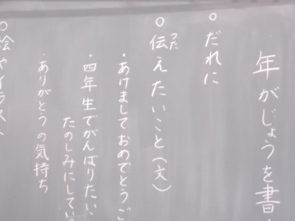 年がじょうを書
○だれに
○伝えたいこと(文)
つた
・あけましておめでとうご
・四年生でがんばりたい
たのしみにしてい
・ありがとうの気持ち
○絵やイラスト